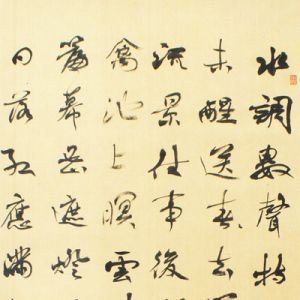 水調數聲持
未醒送春去
流景往事後
禽池上暝雲
簾幕密遮燈
日落紅應滿